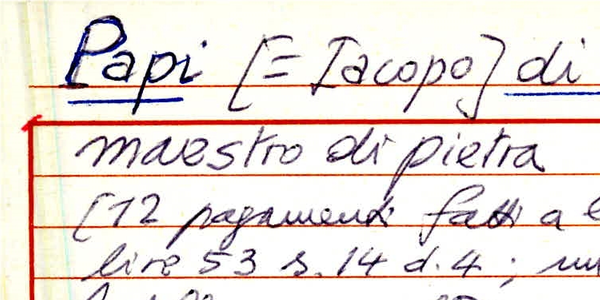 Papi [= Iacopo] di
maestro di pietra
[12 pagamenti fatti a
lire 53 s. 14 d. 4 ;